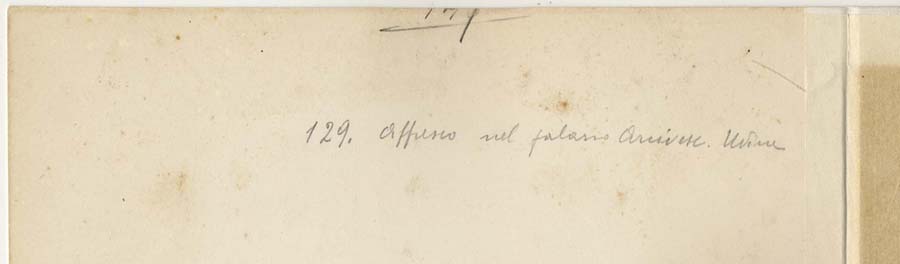 129. Affresco nel palazzo Arcivesc. Udine